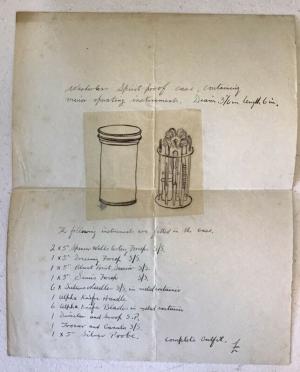 Spirit proof case, containing
minor operating instruments. Diam. 3⅛ in length 6 in.
The following instruments are fitted in the case.
2 x 5" Spencer Wells Artery Forcep S/S.
1 x 5" Dressing Forcep S/S.
1 x 5" Blunt Point Scissor S/S.
1 x 5" Sinus Forcep S/S.
6 x Suture Needles S/S. in metal container
1 Alpha Knife Handle
6 Alpha Knife Blades in metal container
1 Director and Scoop S.P.
1 Trocar and Canula S/S.
1 x 5" Silver Probe.
Complete Outfit. £